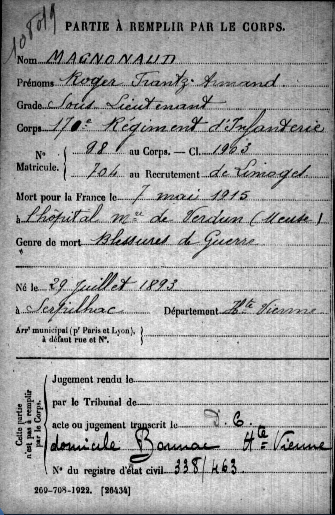 10809
PARTIE À REMPLIR PAR LE CORPS.
Nom MAGNONAUD
Prénoms Roger Frantz-Armand
Grade Sous Lieutenant
Corps 170e Régiment d'Infanterie
N° 98 au Corps. — Cl. 1913
Matricule. 704 au Recrutement de Limoges
Mort pour la France le 7 mai 1915
à l'hôpital mre de Verdun (Meuse)
Genre de mort Blessures de Guerre
Né le 29 Juillet 1893
à Serpilhac Département Hte Vienne
Arrt municipal (pr Paris et Lyon),
à défaut rue et N°.
Cette partie n'est pas à remplir par le Corps.
Jugement rendu le
par le Tribunal de
acte ou jugement transcrit le D. C.
domicile Bonnac Hte Vienne
N° du registre d'état civil 338/463
269-708-1922. [26434]